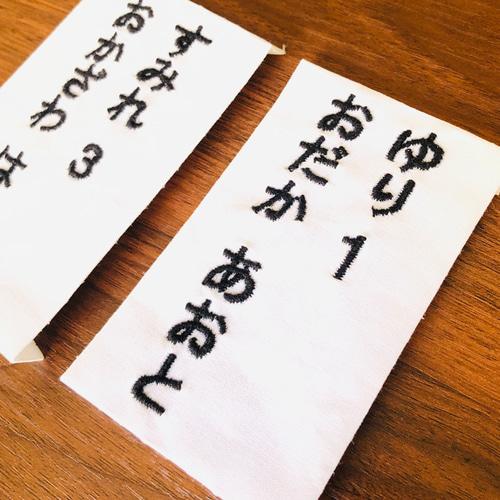 ゆり 1
おだか あおと
すみれ 3
おかざわ は